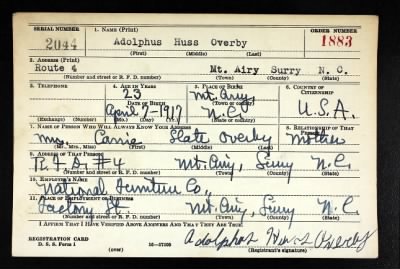 SERIAL NUMBER 1. NAME (Print) ORDER NUMBER
2044 Adolphus Huss Overby 1883
(First) (Middle) (Last)
2. ADDRESS (Print)
Route 4 Mt. Airy Surry N. C.
(Number and street or R. F. D. number) (Town) (County) (State)
3. TELEPHONE 4. AGE IN YEARS 5. PLACE OF BIRTH 6. COUNTRY OF CITIZENSHIP
23 Mt. Airy
DATE OF BIRTH (Town or county)
April 7-1917 N.C. U.S.A.
(Exchange) (Number) (Mo.) (Day) (Yr.) (State or country)
7. NAME OF PERSON WHO WILL ALWAYS KNOW YOUR ADDRESS 8. RELATIONSHIP OF THAT PERSON
Mrs. Carrie Slate Overby Mother
(Mr., Mrs., Miss) (First) (Middle) (Last)
9. ADDRESS OF THAT PERSON
R.F.D. #4 Mt. Airy, Surry N.C.
(Number and street or R. F. D. number) (Town) (County) (State)
10. EMPLOYER'S NAME
National Furniture Co.,
11. PLACE OF EMPLOYMENT OR BUSINESS
Factory St. Mt. Airy, Surry N.C.
(Number and street or R. F. D. number) (Town) (County) (State)
I AFFIRM THAT I HAVE VERIFIED ABOVE ANSWERS AND THAT THEY ARE TRUE.
REGISTRATION CARD Adolphus Huss Overby
D. S. S. Form 1 (over) 16-17105 (Registrant's signature)